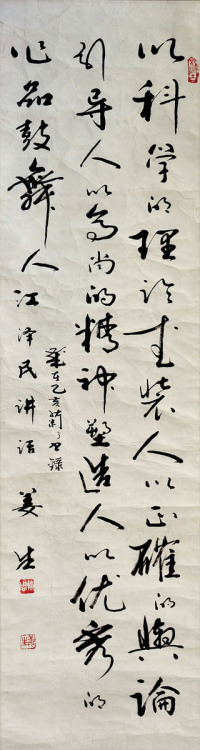 以科学的理论武装人以正確的輿論
引导人以高尚的精神塑造人以优秀的
作品鼓舞人江泽民讲话
歲在乙亥 书錄
姜生